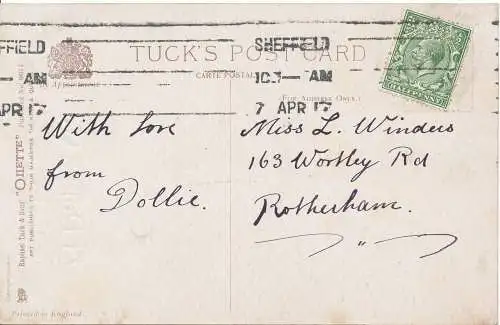 SHEFFIELD
TUCK'S POST CARD
CARTE POSTALE
(FOR ADDRESS ONLY.)
AM
7 APR 17
HALFPENNY
With love
from
Dollie.
Miss L. Winders
163 Wortley Rd
Rotherham.
Raphael Tuck & Sons' "OILETTE"
Printed in England